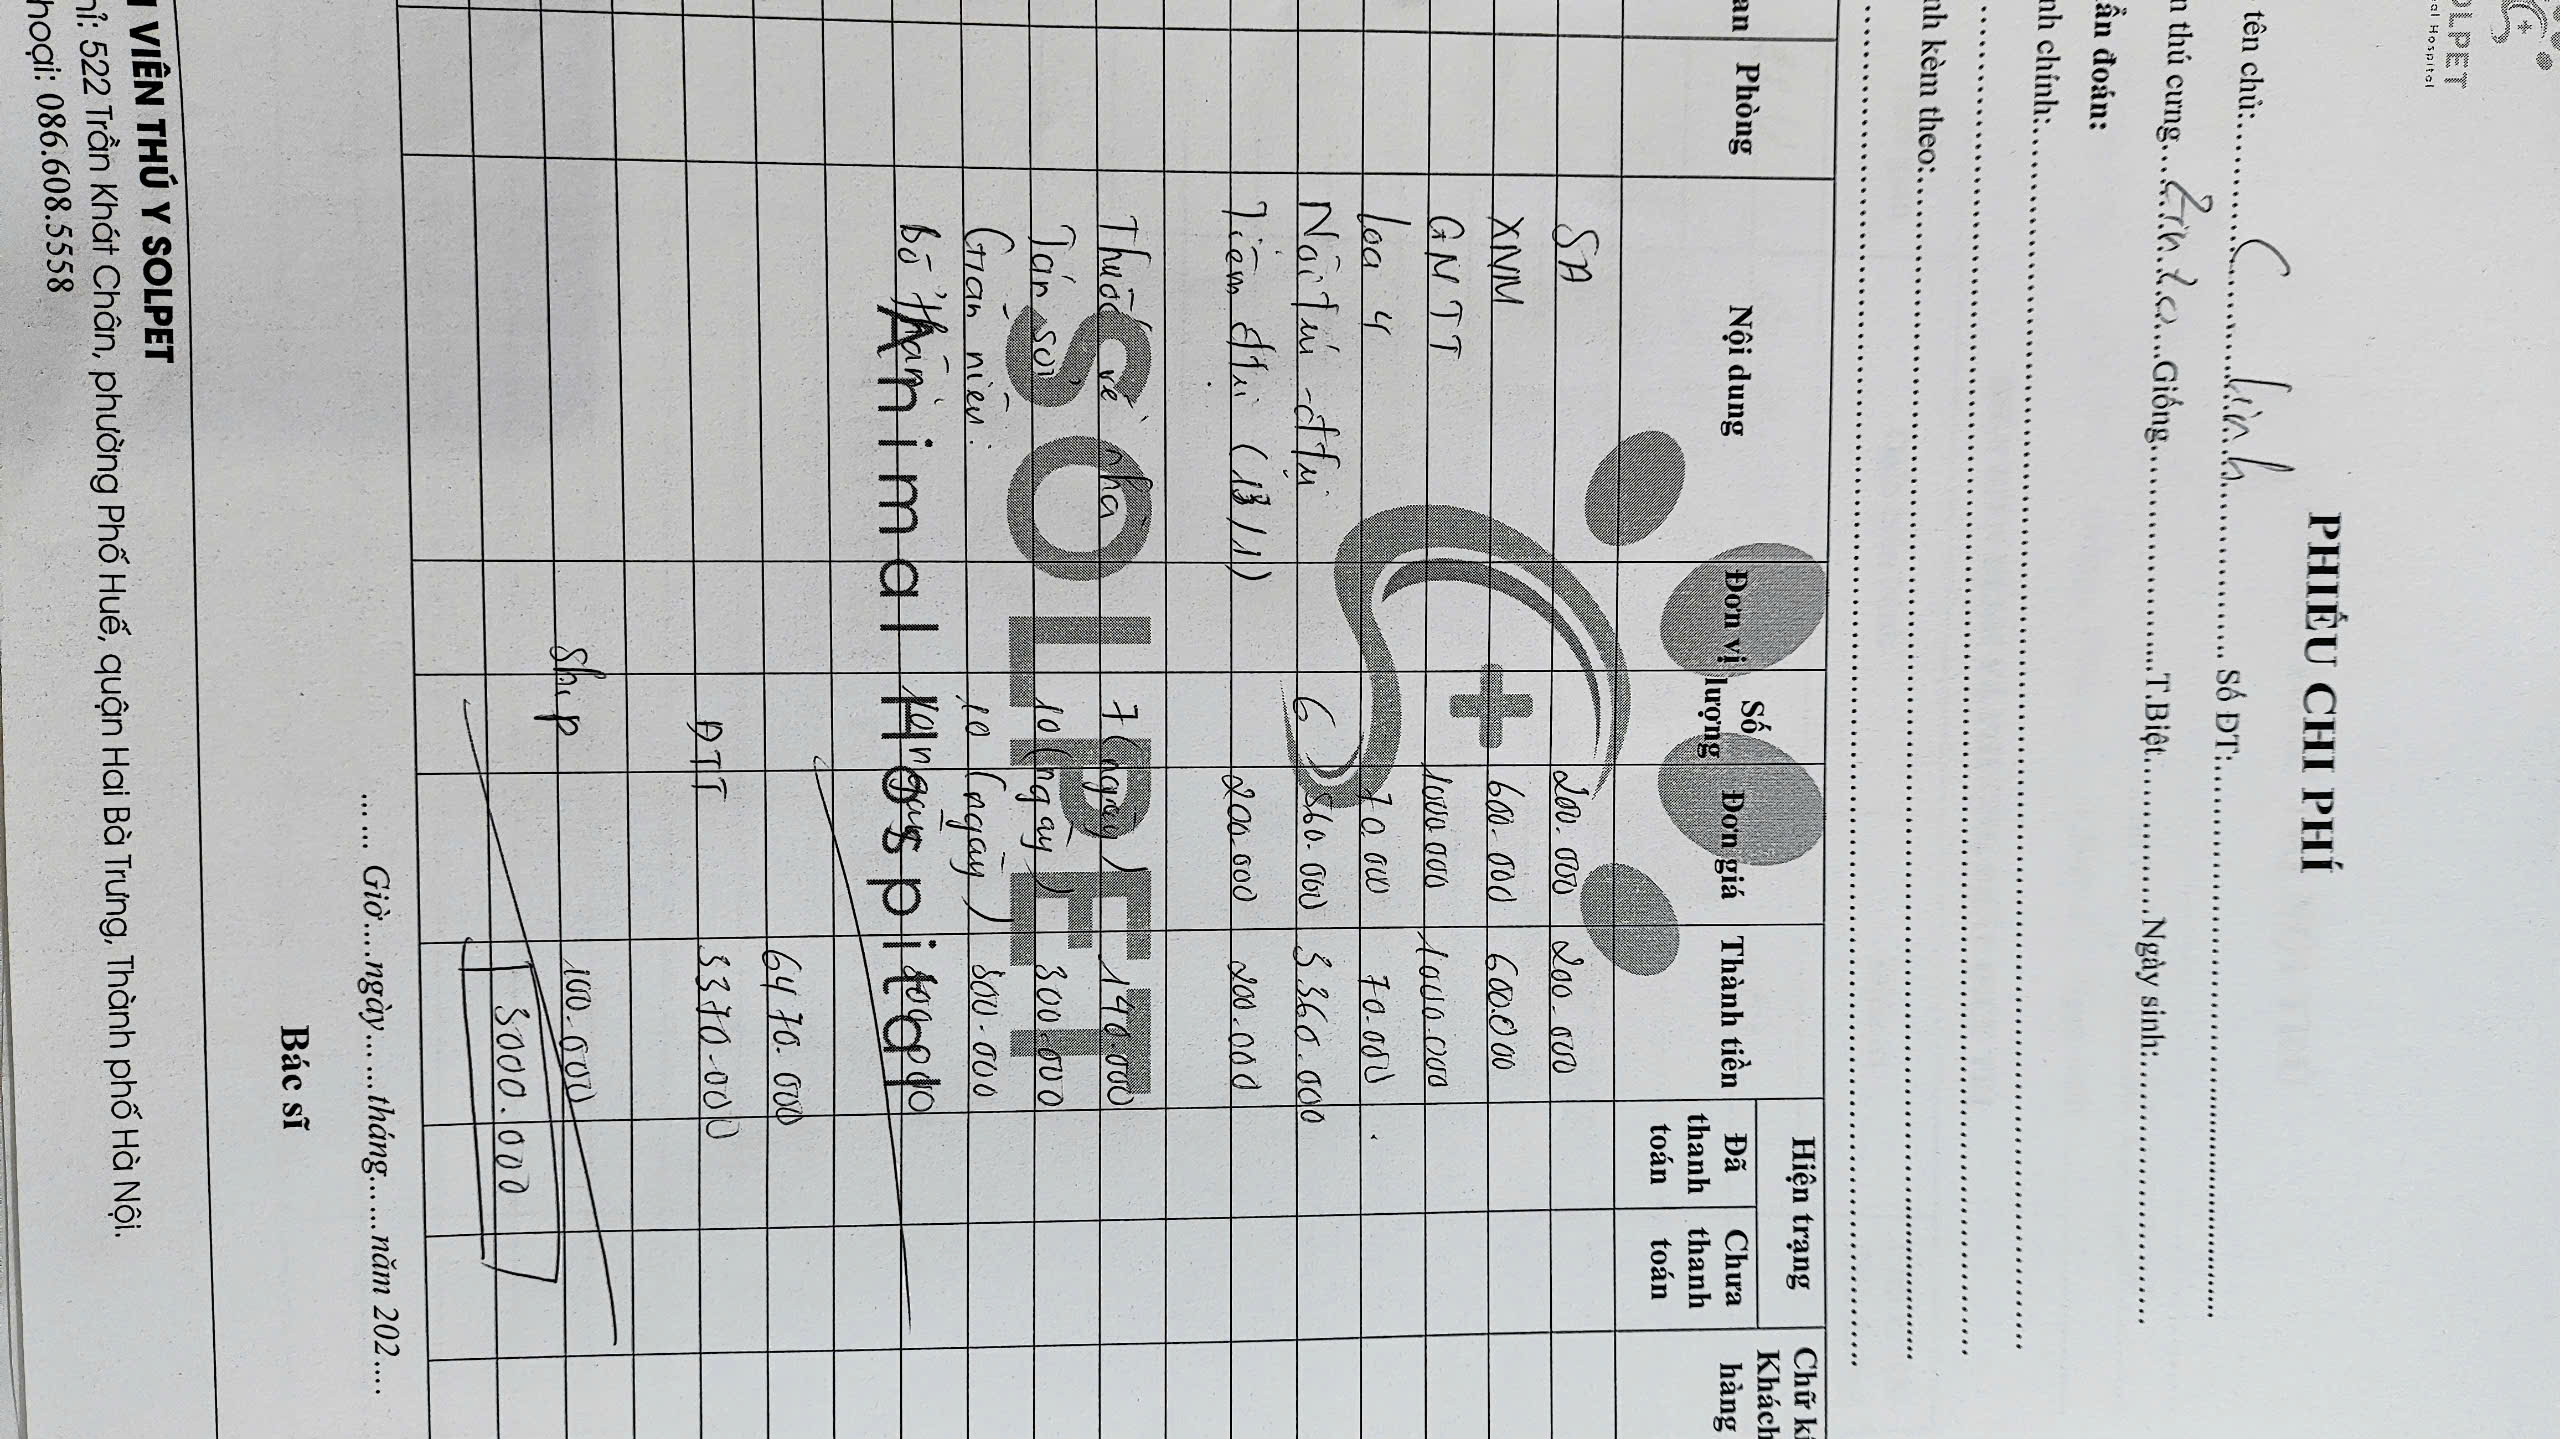 OLPET
al Hospital
PHIẾU CHI PHÍ
tên chủ: C Linh Số ĐT:
n thú cưng Giống T.Biệt Ngày sinh:
ẩn đoán:
nh chính:
nh kèm theo:
an Phòng Nội dung Đơn vị Số lượng Đơn giá Thành tiền Hiện trạng Chữ kí Khách hàng
Đã thanh toán Chưa thanh toán
SA 200.000 200.000
XNM 600.000 600.000
GNTT 1000.000 1000.000
loa 4 70.000 70.000
Nội trú - đtrị 6 560.000 3360.000
Tiêm đtrị (13/1) 200.000 200.000
Thuốc về nhà 7 (ngày) 140.000
Tán sỏi 10 (ngày) 300.000
Giãn niệu 10 (ngày) 300.000
Bổ thận 10 ngày
6470.000
ĐTT 3370.000
Ship 100.000
3000.000
SOLPET
Animal Hospital
Giờ ngày tháng năm 202
Bác sĩ
I VIÊN THÚ Y SOLPET
hỉ: 522 Trần Khát Chân, phường Phố Huế, quận Hai Bà Trưng, Thành phố Hà Nội.
hoại: 086.608.5558